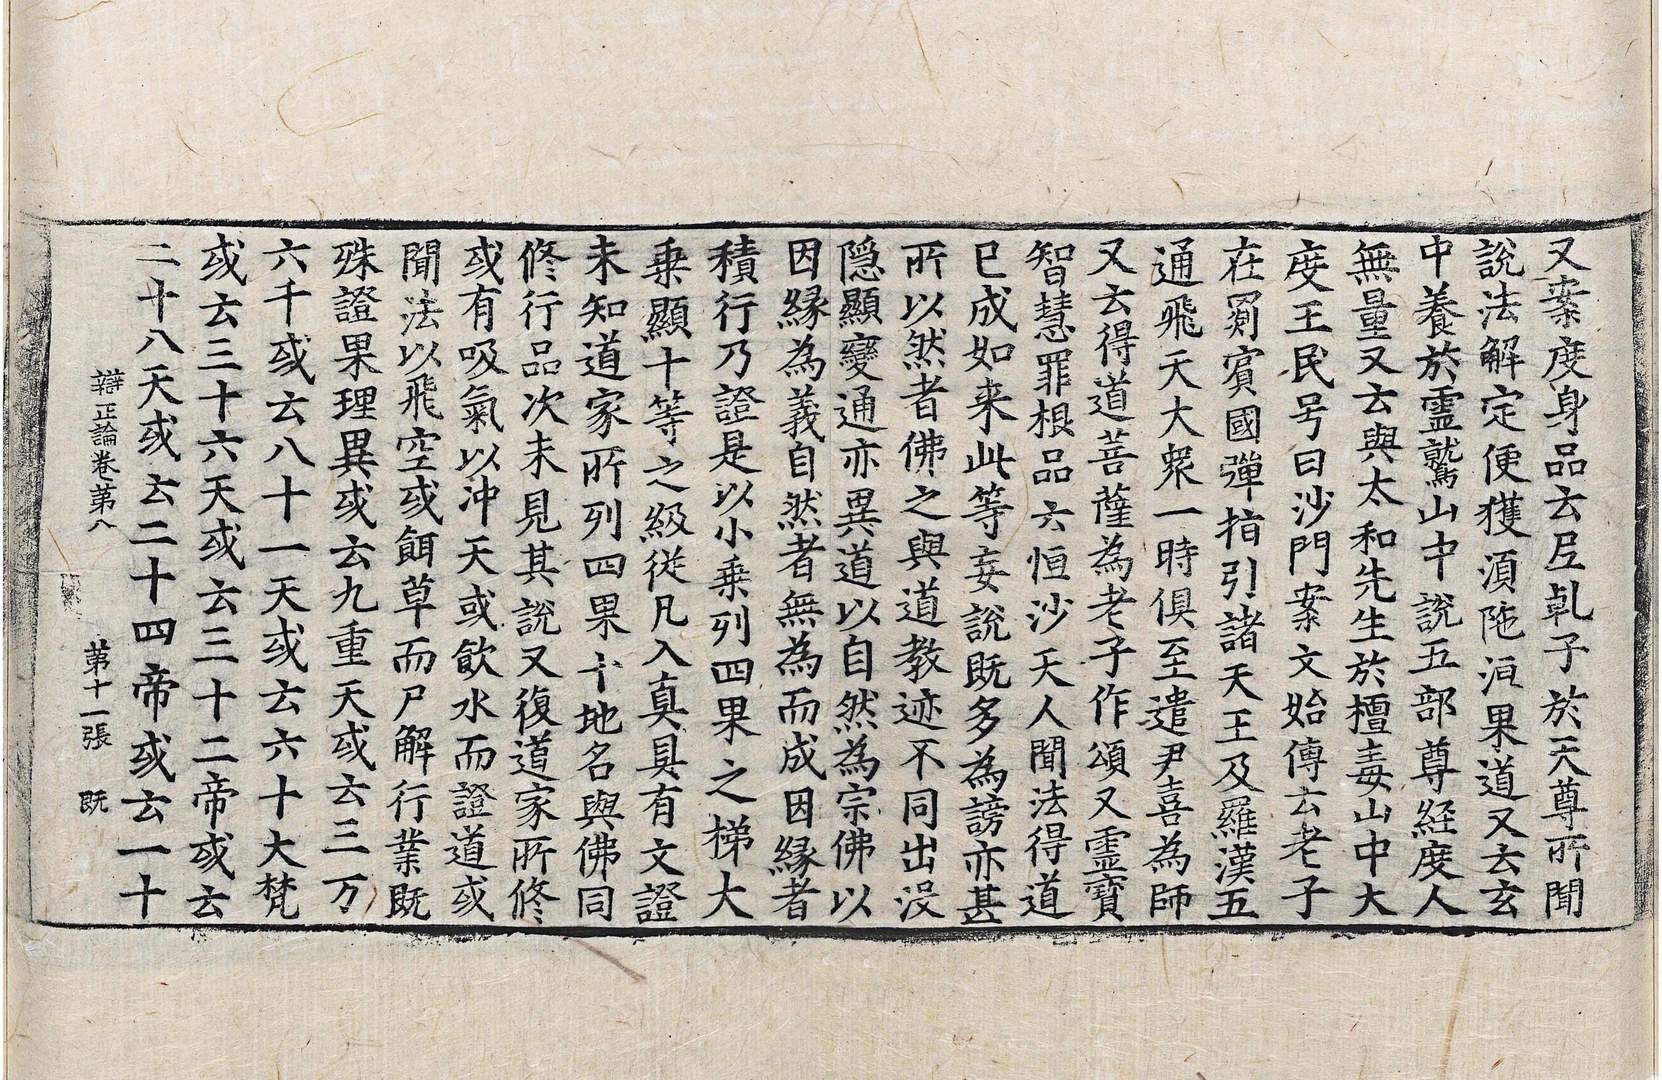 又案度身品云㞐乹子於天尊所聞
說法解定便獲湏陁洹果道又云玄
中養於靈鷲山中說五部尊経度人
無量又云與太和先生於檀毒山中大
度王民号曰沙門案文始傳云老子
在罽賓國彈指引諸天王及羅漢五
通飛天大衆一時俱至遣尹喜為師
又云得道菩薩為老子作頌又靈寶
智慧罪根品云恒沙天人聞法得道
已成如来此等妄說既多為謗亦甚
所以然者佛之與道教迹不同出没
隐顯變通亦異道以自然為宗佛以
因縁為義自然者無為而成因縁者
積行乃證是以小乗列四果之梯大
乗顯十等之級從凡入真具有文證
未知道家所列四果十地名與佛同
修行品次未見其說又復道家所修
或有吸氣以沖天或飲水而證道或
聞法以飛空或餌草而尸解行業既
殊證果理異或云九重天或云三万
六千或云八十一天或云六十大梵
或云三十六天或云三十二帝或云
二十八天或云二十四帝或云一十
辯正論卷第八　第十一張　既